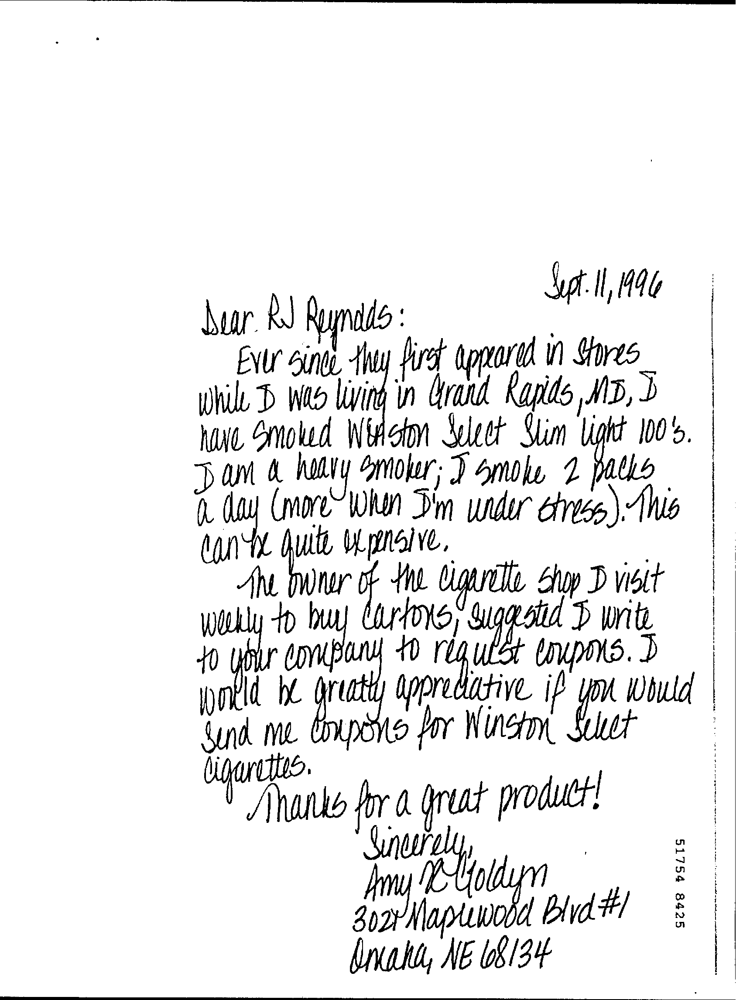 Sept. 11, 1996
Dear RJ Reynolds:
Ever since they first appeared in stores
while I was living in Grand Rapids, MI, I
have smoked Winston Select Slim light 100's.
I am a heavy smoker; I smoke 2 packs
a day (more when I'm under stress). This
can be quite expensive.
The owner of the cigarette shop I visit
weekly to buy cartons, suggested I write
to your company to request coupons. I
would be greatly appreciative if you would
send me coupons for Winston Select
cigarettes.
Thanks for a great product!
Sincerely,
Amy Goldyn
Maplewood Blvd #1
Omaha, NE 68134
51754 8425